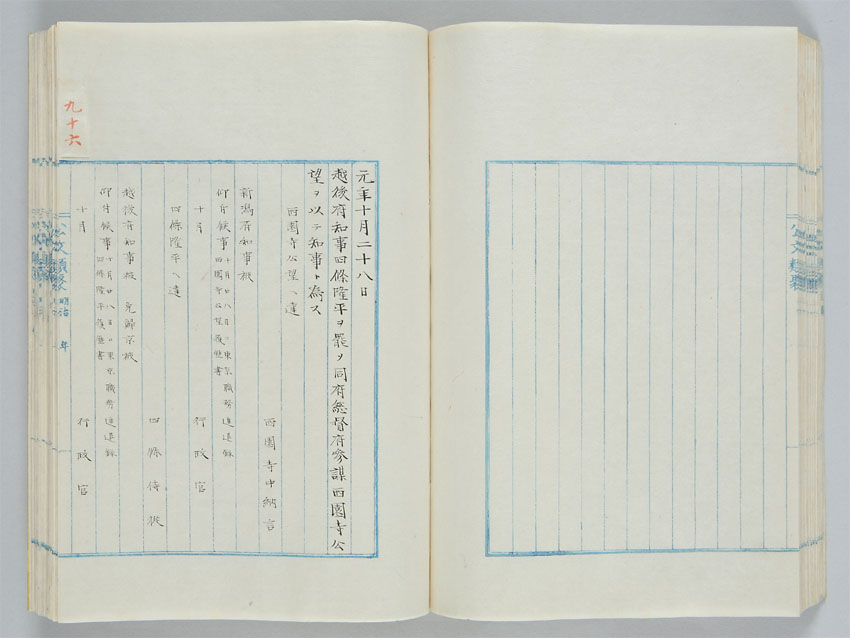 九十六
元年十月二十八日
越後府知事四條隆平ヲ罷メ同府總督府參謀西園寺公
望ヲ以テ知事ト為ス
西園寺公望ヘ達
西園寺中納言
新潟府知事被
仰付候事 十月廿八日 ○東京職務進退録
西園寺公望履歴書
十月
行政官
四條隆平ヘ達
四條侍從
越後府知事被免歸京被
仰付候事 十月廿八日 ○東京職務進退録
四條隆平履歴書
十月
行政官
公文類聚 明治 年
公文類聚